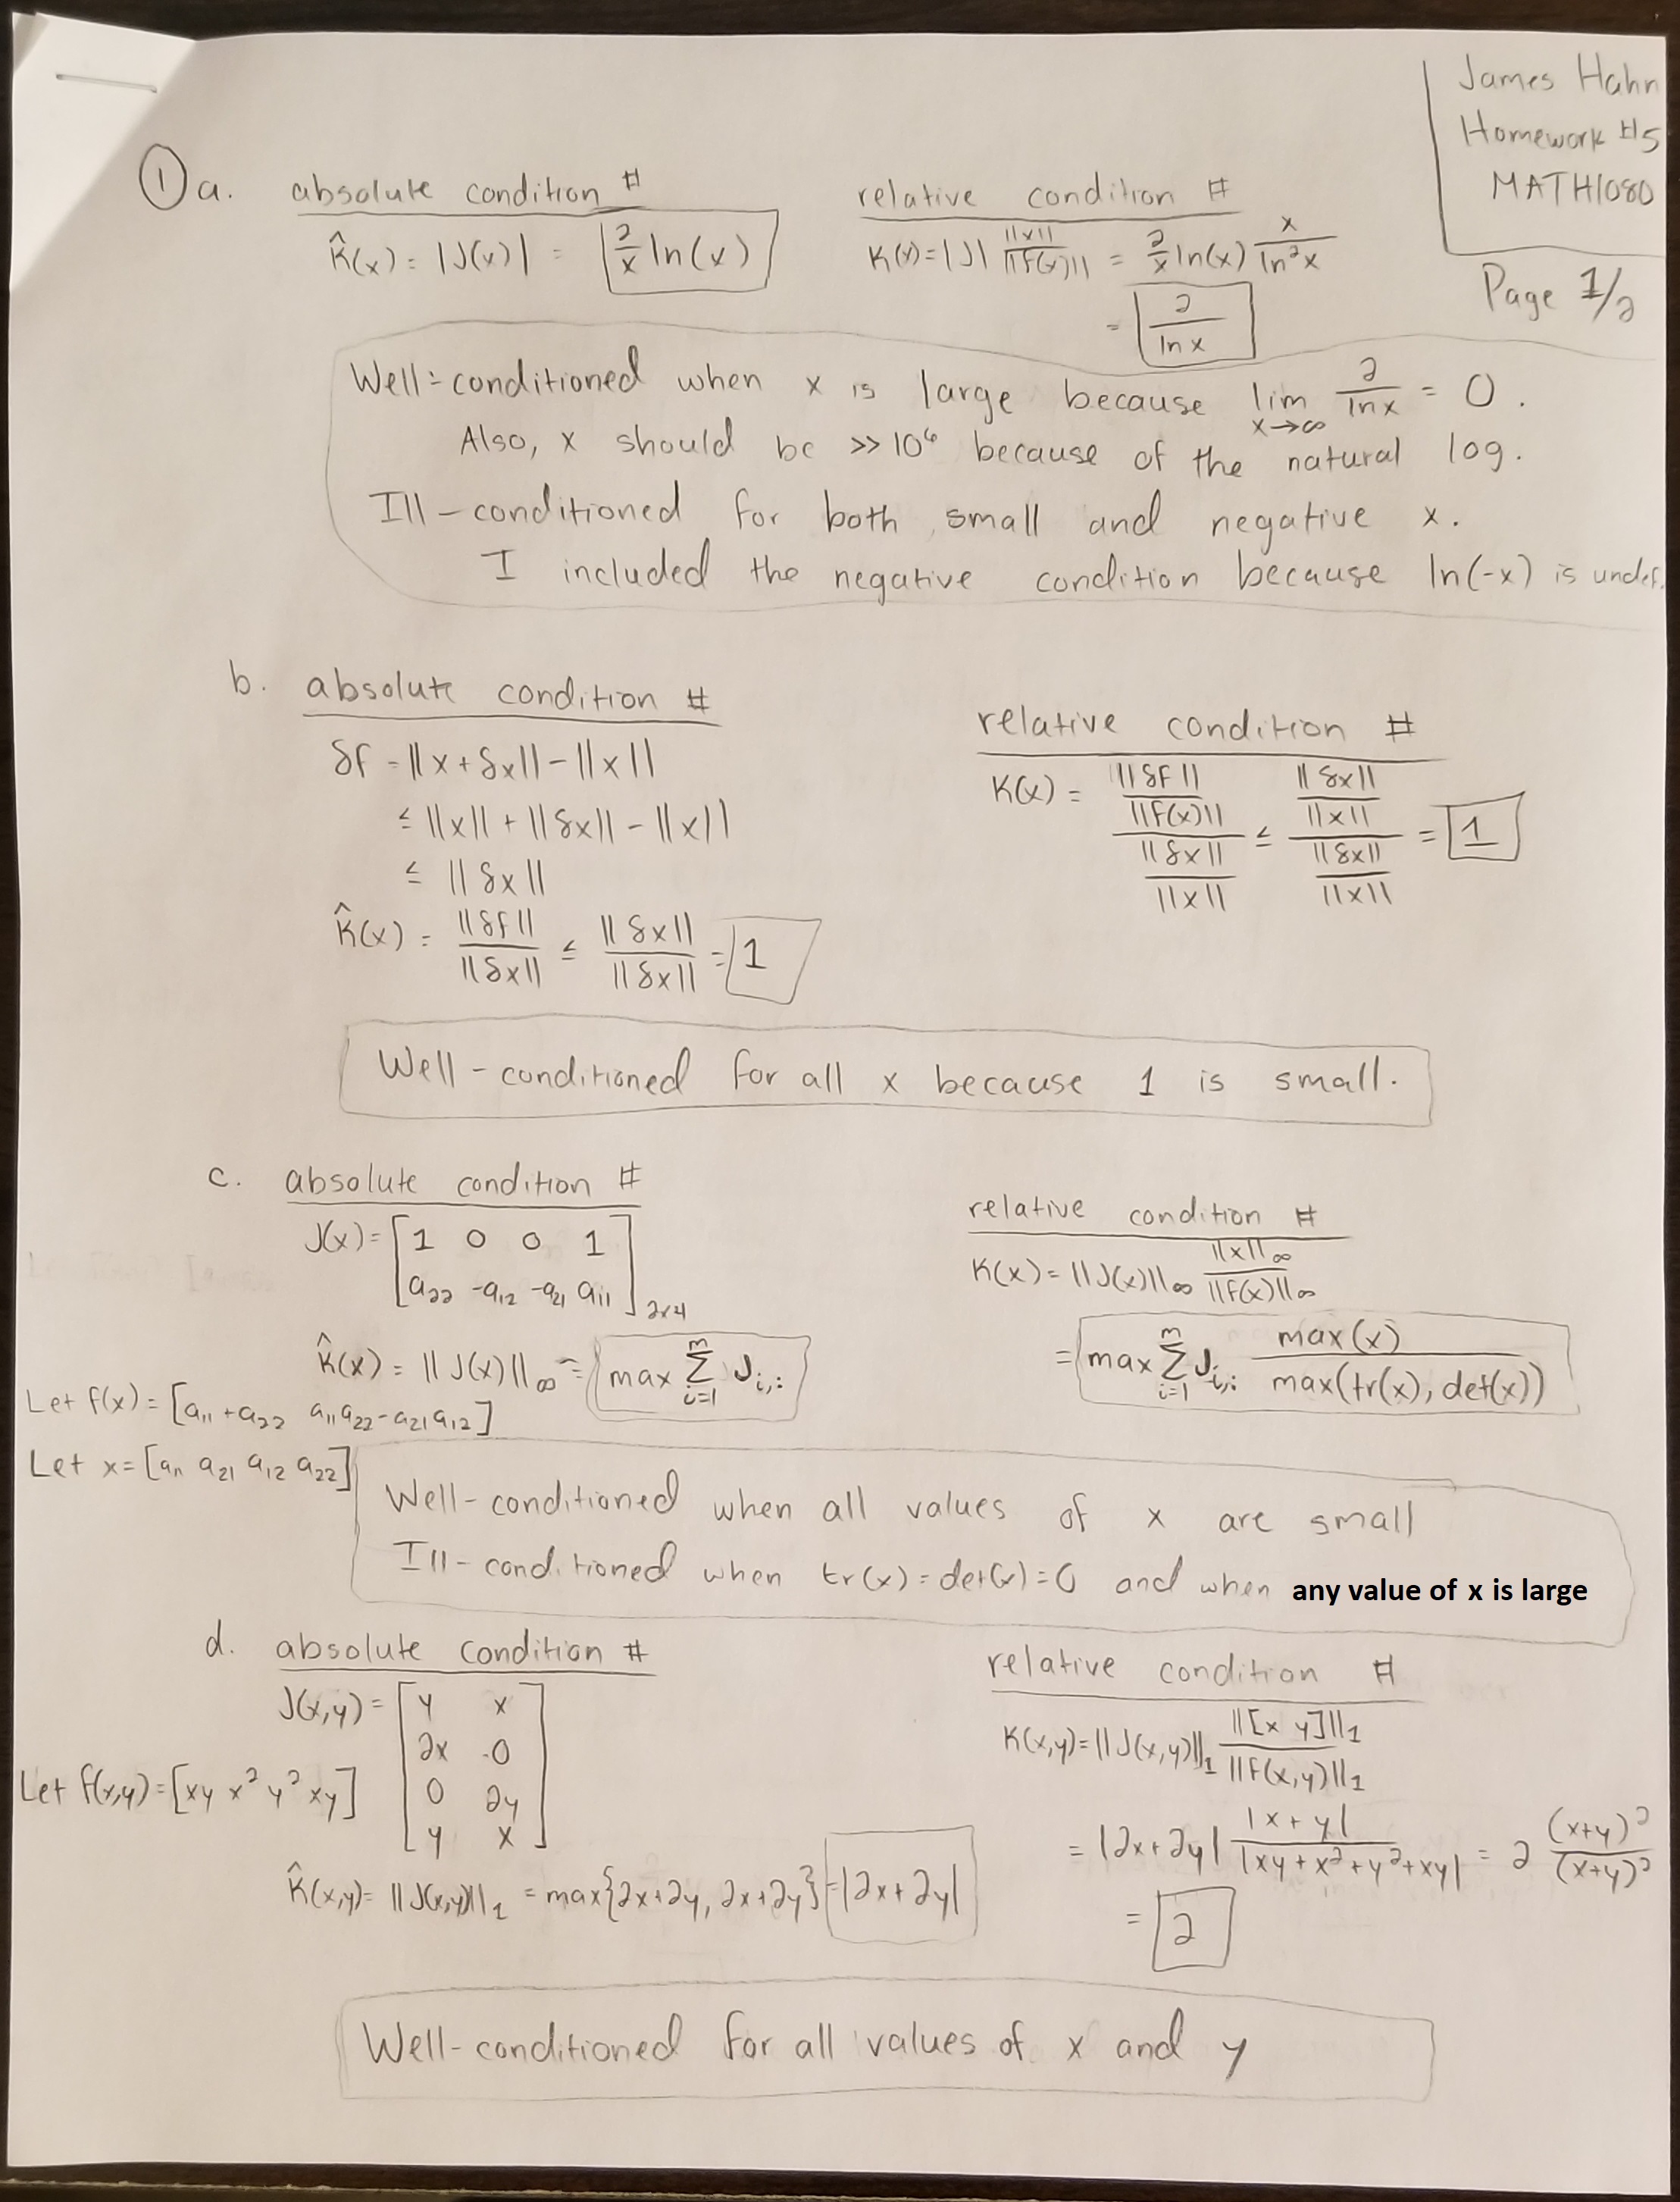 James Hahn
Homework #5
MATH1080
Page 1/2
① a. absolute condition #
K̂(x) = |J(x)| = |2/x ln(x)
relative condition #
K(x) = |J| ||x||/||f(x)|| = 2/x ln(x) x/ln²x
= 2/ln x
Well-conditioned when x is large because lim x→∞ 2/ln x = 0.
Also, x should be >> 10⁶ because of the natural log.
Ill-conditioned for both small and negative x.
I included the negative condition because ln(-x) is undef.
b. absolute condition #
δf = ||x + δx|| - ||x||
≤ ||x|| + ||δx|| - ||x||
≤ ||δx||
K̂(x) = ||δf||/||δx|| ≤ ||δx||/||δx|| = 1
relative condition #
K(x) = (||δf||/||f(x)||)/(||δx||/||x||) ≤ (||δx||/||x||)/(||δx||/||x||) = 1
Well-conditioned for all x because 1 is small.
c. absolute condition #
J(x) = [1 0 0 1
a₂₂ -a₁₂ -a₂₁ a₁₁] 2x4
K̂(x) = ||J(x)||∞ = max Σ_{i=1}^{m} J_{i,:}
Let f(x) = [a₁₁ + a₂₂ a₁₁a₂₂ - a₂₁a₁₂]
Let x = [a₁₁ a₂₁ a₁₂ a₂₂]
relative condition #
K(x) = ||J(x)||∞ ||x||∞/||f(x)||∞
= max Σ_{i=1}^{m} J_{i,:} max(x)/max(tr(x), det(x))
Well-conditioned when all values of x are small
Ill-conditioned when tr(x) = det(x) = 0 and when any value of x is large
d. absolute condition #
J(x,y) = [y x
2x 0
0 2y
y x]
Let f(x,y) = [xy x² y² xy]
K̂(x,y) = ||J(x,y)||₁ = max{2x+2y, 2x+2y} = |2x + 2y|
relative condition #
K(x,y) = ||J(x,y)||₁ ||[x y]||₁/||f(x,y)||₁
= |2x+2y| |x + y|/|xy + x² + y² + xy| = 2 (x+y)²/(x+y)²
= 2
Well-conditioned for all values of x and y